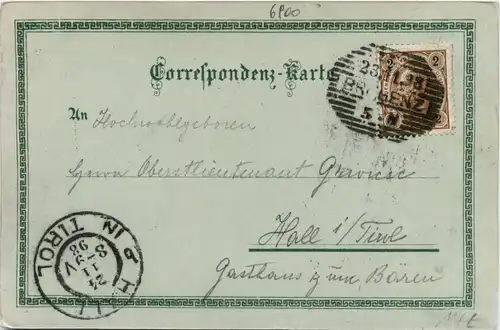 6900
Correspondenz-Karte
2 2
23.11.98
BREGENZ
5.N
An Hochwohlgeboren
Herrn Oberstlieutenant
Hall i/Tirol
Gasthaus zum Bären
HALL IN TIROL
24
11
98
8-9V